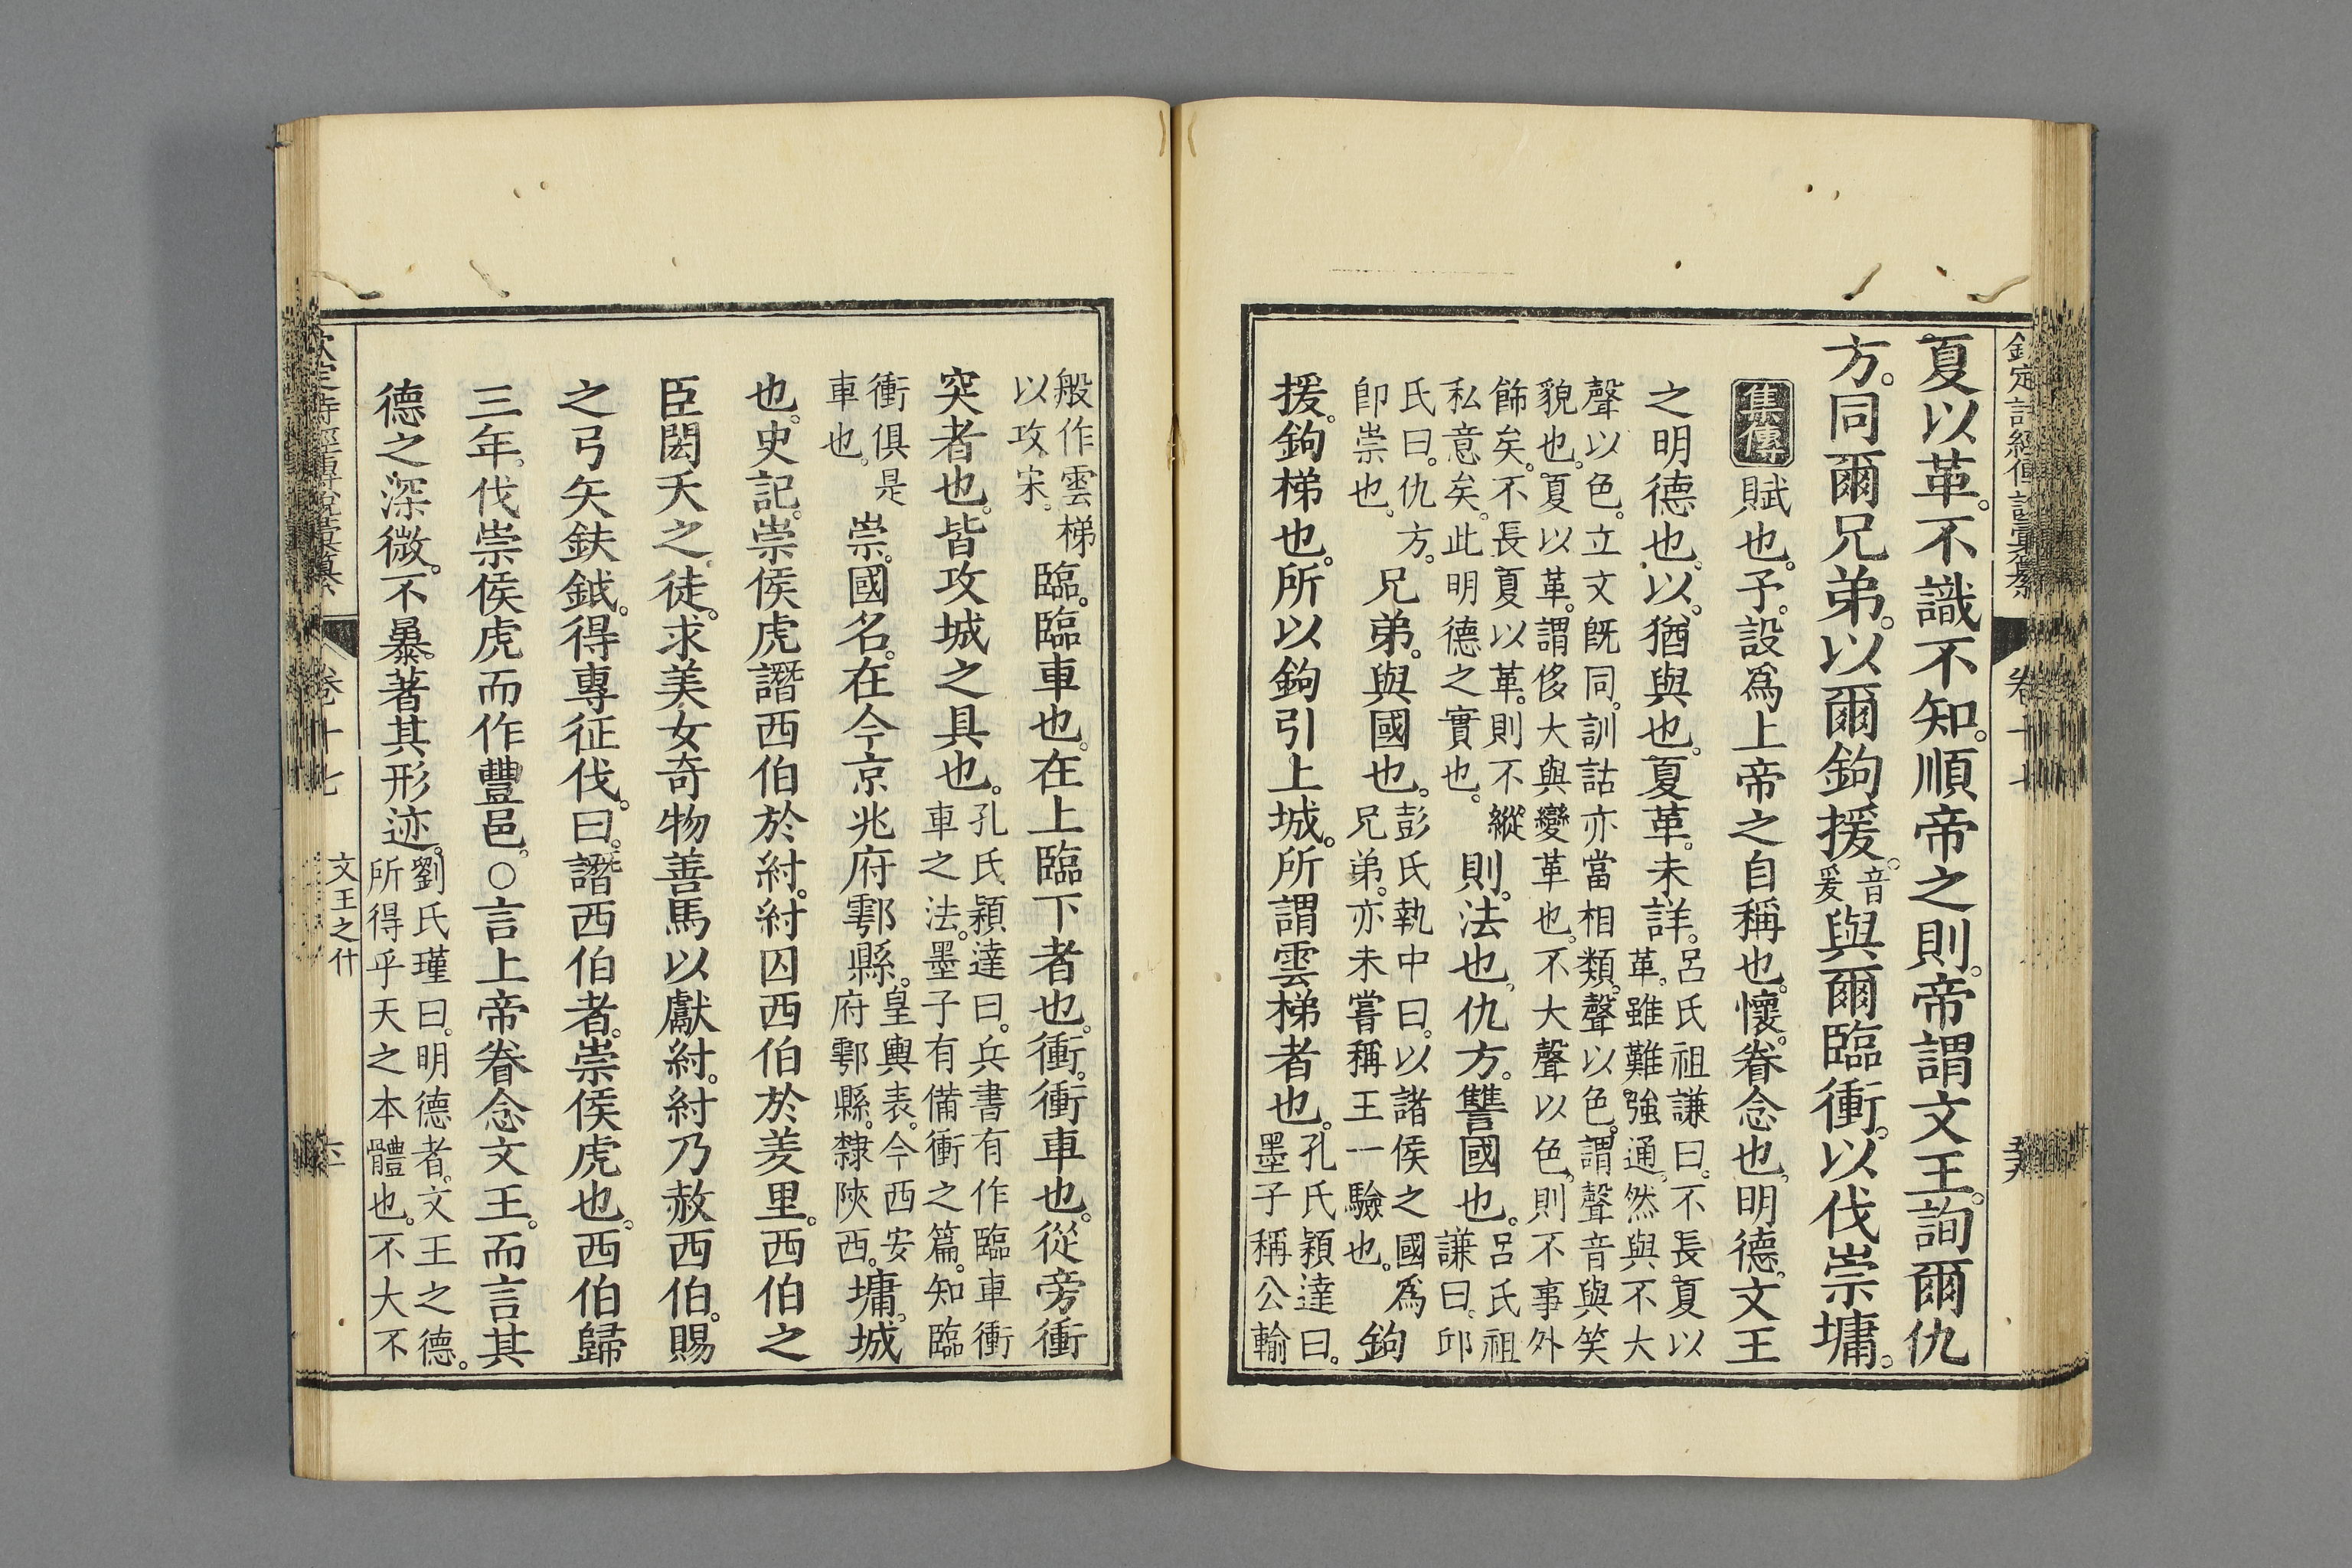 欽定詩經傳說彙纂 卷十七
夏以革。不識不知。順帝之則。帝謂文王。詢爾仇
方。同爾兄弟。以爾鉤援。音爰與爾臨衝。以伐崇墉。
集傳 賦也。予。設爲上帝之自稱也。懷。眷念也。明德。文王
之明德也。以。猶與也。夏革。未詳。呂氏祖謙曰。不長夏以
革。雖難強通。然與不大
聲以色。立文旣同。訓詁亦當相類。聲以色。謂聲音與笑
貌也。夏以革。謂侈大與變革也。不大聲以色。則不事外
飾矣。不長夏以革。則不縱
私意矣。此明德之實也。
則。法也。仇方。讐國也。呂氏祖
謙曰。邱
氏曰。仇方。
卽崇也。
兄弟。與國也。彭氏執中曰。以諸侯之國爲
兄弟。亦未嘗稱王一驗也。
鉤
援。鉤梯也。所以鉤引上城。所謂雲梯者也。孔氏穎達曰。
墨子稱公輸
般作雲梯
以攻宋。
臨。臨車也。在上臨下者也。衝。衝車也。從旁衝
突者也。皆攻城之具也。孔氏穎達曰。兵書有作臨車衝
車之法。墨子有備衝之篇。知臨
衝俱是
車也。
崇。國名。在今京兆府鄠縣。皇輿表。今西安
府鄠縣。隸陝西。
墉。城
也。史記。崇侯虎譖西伯於紂。紂囚西伯於羑里。西伯之
臣閎夭之徒。求美女奇物善馬以獻紂。紂乃赦西伯。賜
之弓矢鈇鉞。得專征伐。曰。譖西伯者。崇侯虎也。西伯歸
三年。伐崇侯虎而作豐邑。○言上帝眷念文王。而言其
德之深微。不暴著其形迹。劉氏瑾曰。明德者。文王之德。
所得乎天之本體也。不大不
欽定詩經傳說彙纂 卷十七 文王之什